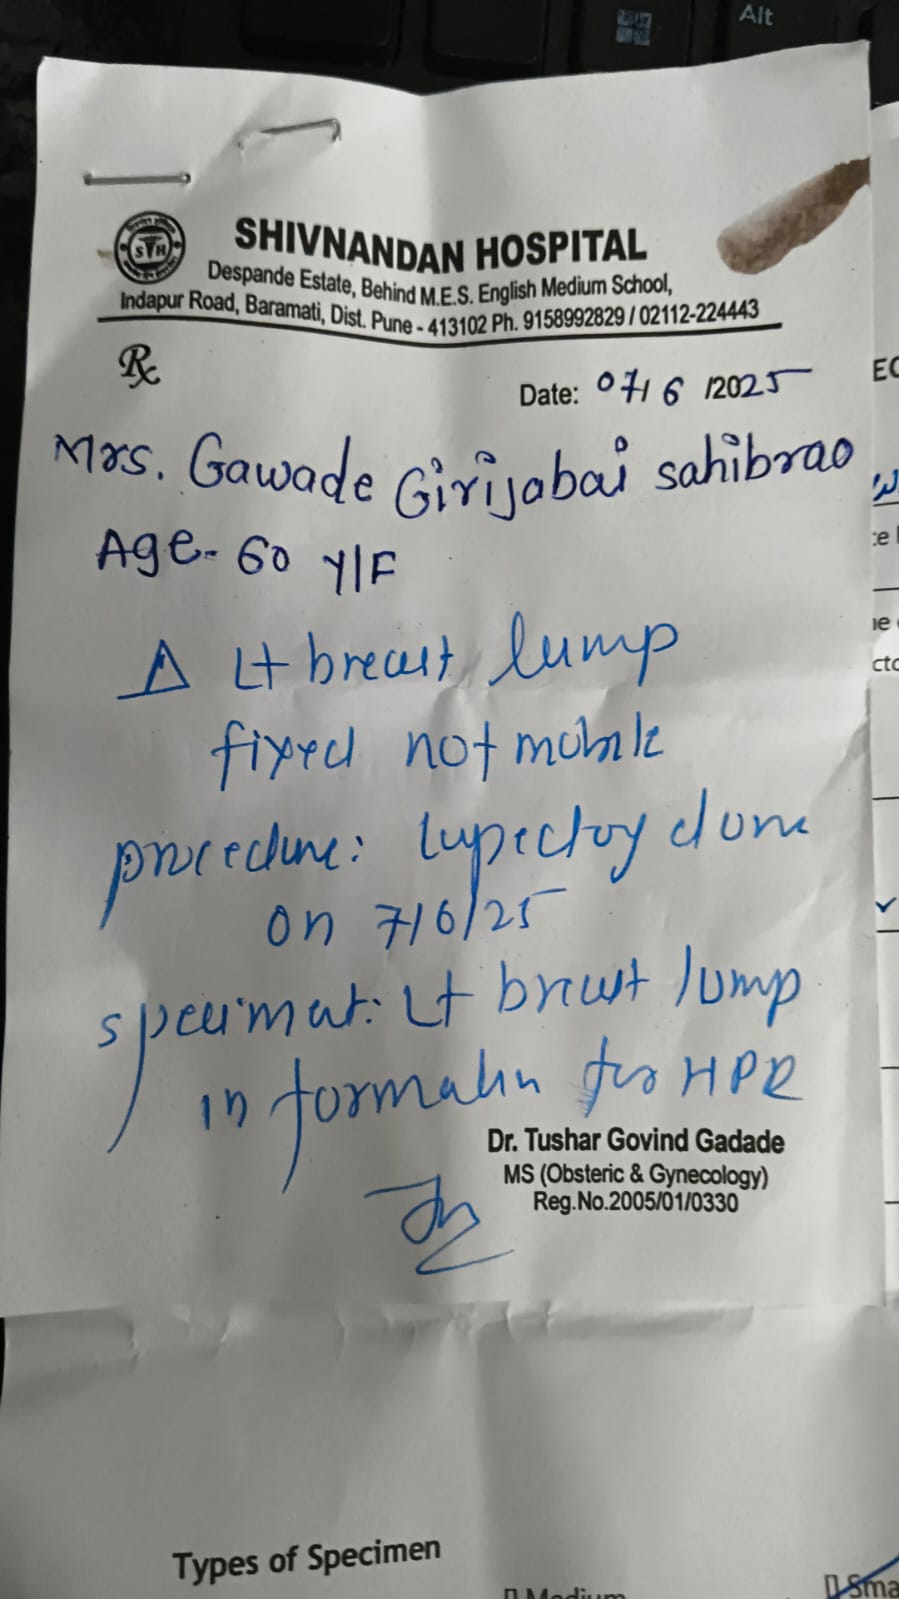 Alt
SHIVNANDAN HOSPITAL
Despande Estate, Behind M.E.S. English Medium School,
Indapur Road, Baramati, Dist. Pune - 413102 Ph. 9158992829 / 02112-224443
Rx
Date: 07/6/2025
Mrs. Gawade Girijabai sahibrao
Age- 60 Y/F
Δ Lt breast lump
fixed not mobile
procedure: lupectoy done
on 7/6/25
specimat: Lt breast lump
in formalin for HPR
Dr. Tushar Govind Gadade
MS (Obsteric & Gynecology)
Reg.No.2005/01/0330
Types of Specimen
Medium
Sma